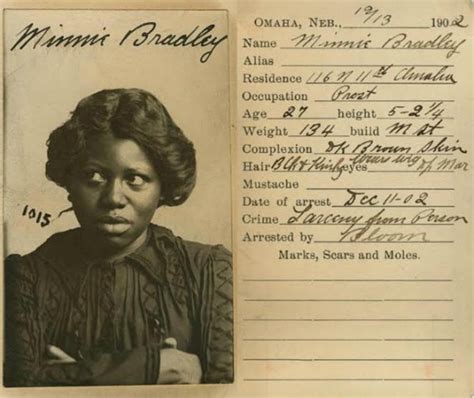 Minnie Bradley
1015
OMAHA, NEB., 12/13 1902
Name Minnie Bradley
Alias
Residence 116 N 11th Omaha
Occupation Prost
Age 27 height 5-2 1/4
Weight 134 build M st
Complexion dk Brown Skin
Hair Blk & Kinky wears wig eyes dp Mar
Mustache
Date of arrest Dec 11-02
Crime Larceny from Person
Arrested by Bloom
Marks, Scars and Moles.